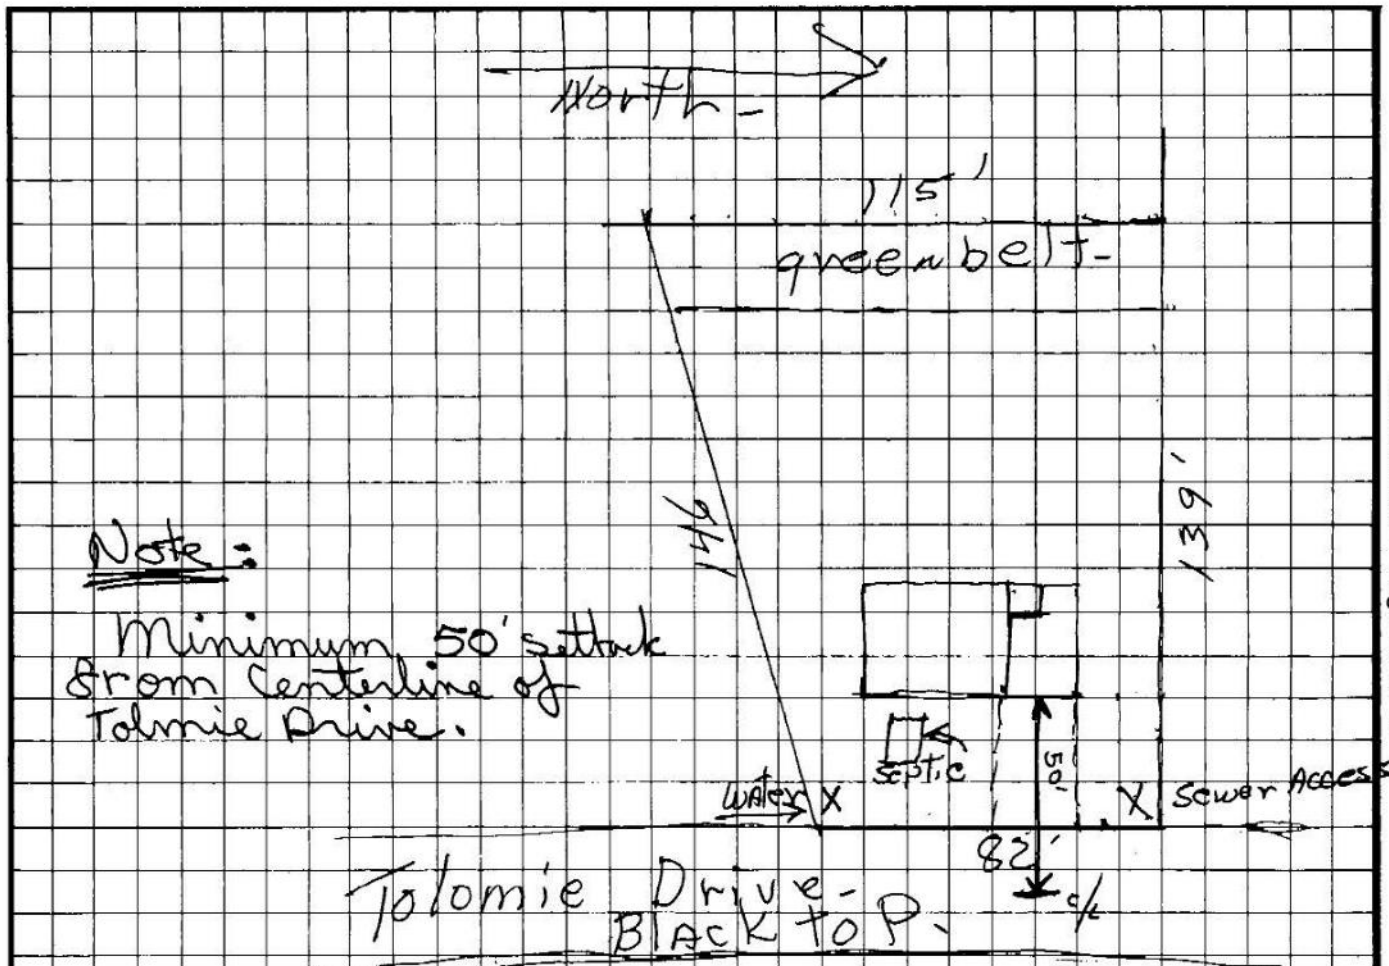 North -
115'
greenbelt-
146
139'
Note:
Minimum 50' setback
from Centerline of
Tolmie Drive.
septic
50'
water X
X Sewer Access
82'
c/L
Tolomie Drive-
Black top.